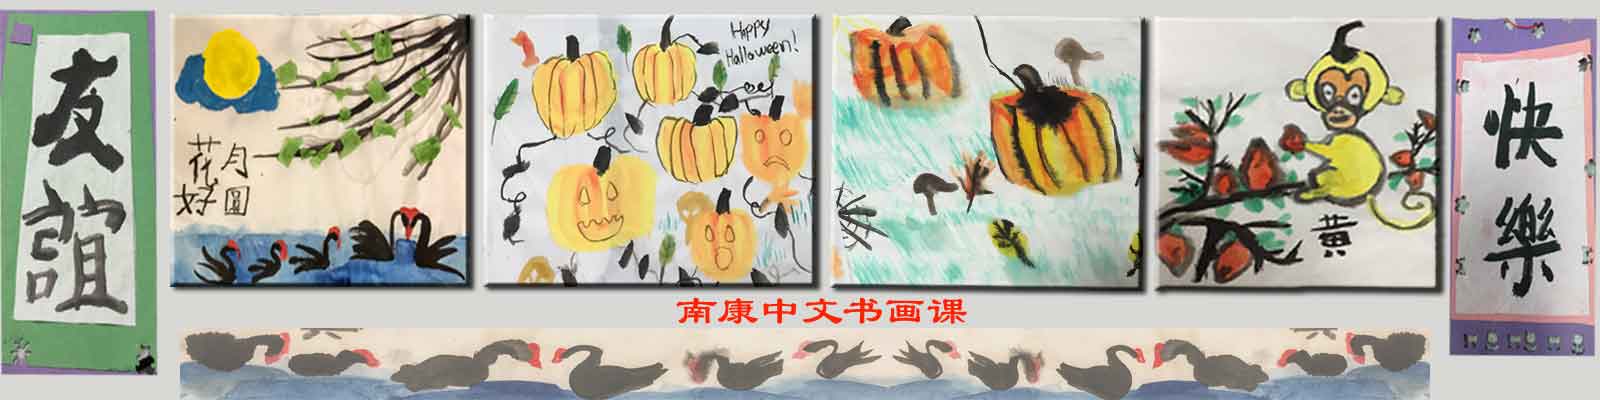 友誼
花月
好圆
Happy
Halloween!
黄
快樂
南康中文书画课